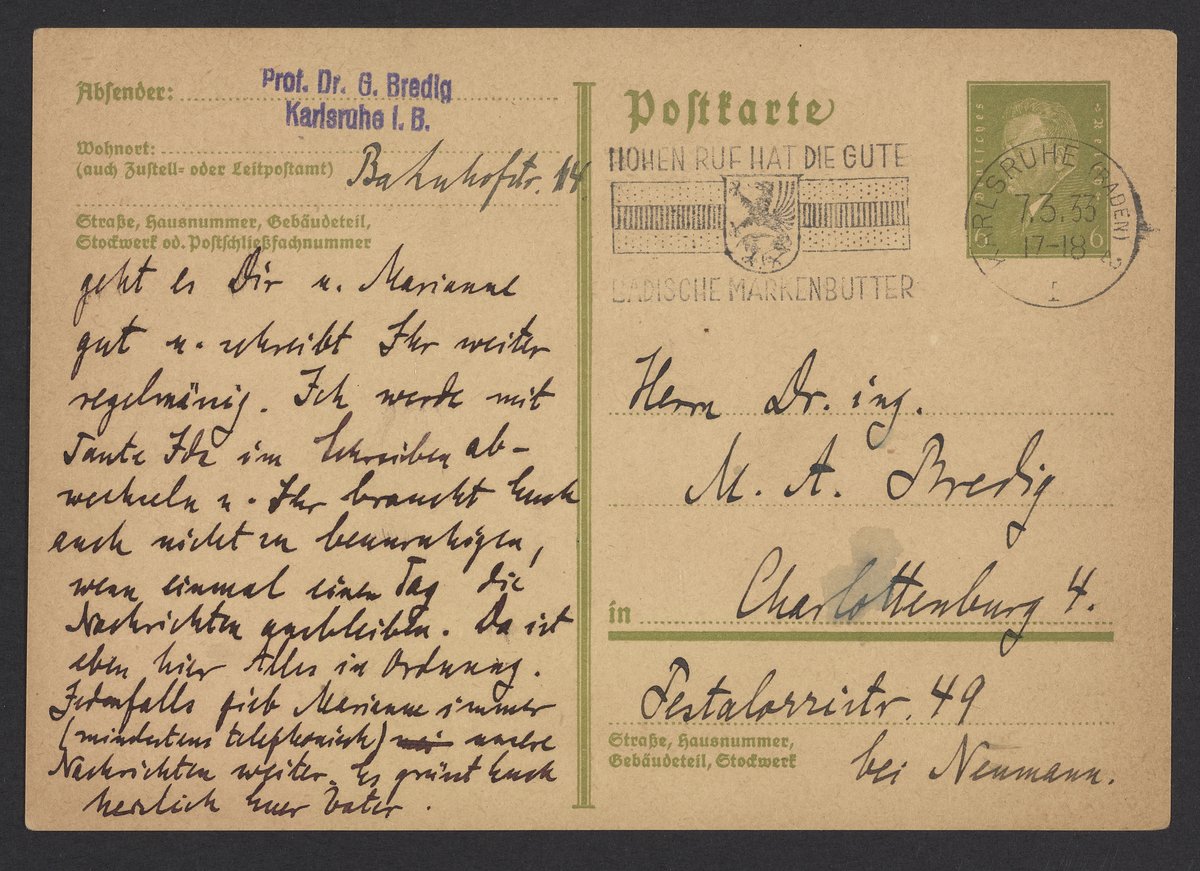 Absender:
Prof. Dr. G. Bredig
Karlsruhe i. B.
Wohnort:
(auch Zustell- oder Leitpostamt)
Bahnhofstr. 14
Straße, Hausnummer, Gebäudeteil,
Stockwerk od. Postschließfachnummer
geht es Dir u. Marianne
gut u. schreibt Ihr weiter
regelmässig. Ich werde mit
Tante Ida im Schreiben ab-
wechseln u. Ihr braucht Euch
auch nicht zu beunruhigen,
wenn einmal einen Tag die
Nachrichten ausbleiben. Da ist
eben hier Alles in Ordnung.
Jedenfalls gieb Marianne immer
(mindestens telephonisch) unsere
Nachrichten weiter. Es grüsst Euch
herzlich Euer Vater.
Postkarte
HOHEN RUF HAT DIE GUTE
BADISCHE MARKENBUTTER
Deutsches
6 6
KARLSRUHE (BADEN) 2
7.3.33
17-18
I
Herrn Dr. ing.
M. A. Bredig
in Charlottenburg 4.
Pestalozzistr. 49
Straße, Hausnummer,
Gebäudeteil, Stockwerk
bei Neumann.